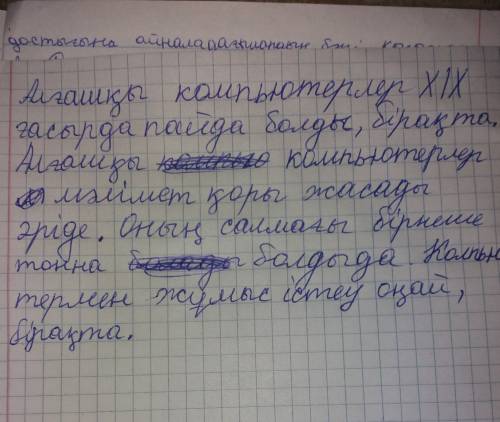 достығына айналадағы
Алғашқы компьютерлер XIX
ғасырда пайда болды, бірақта.
Алғашқы компьютерлер
мәлімет қоры жасады
әріде. Оның салмағы бірнеше
тонна болдыда. Компью
термен жұмыс істеу оңай,
бірақта.